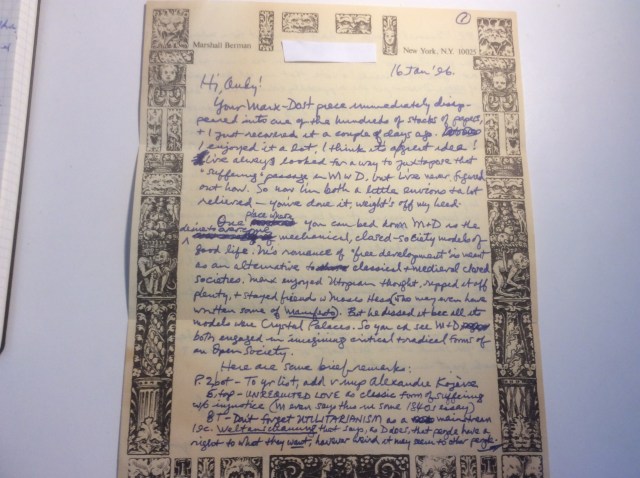 ①
Marshall Berman
New York, N.Y. 10025
16 Jan '96.
Hi, !
Your Marx-Dost piece immediately disap-
peared into one of the hundreds of stacks of papers,
+ I just recovered it a couple of days ago.
I enjoyed it a lot, I think it's a great idea!
I've always looked for a way to juxtapose that
"suffering" passage in M w D, but I've never figured
out how. So now I'm both a little envious + a lot
relieved — you've done it, weight's off my head.
One piece where you can bed down M+D is the
desire to overcome mechanical, closed-society models of
good life. M's romance of "free development" is meant
as an alternative to classical + medieval closed
societies. Marx enjoyed Utopian thought, ripped it off
plenty, + stayed friends w Moses Hess (who may even have
written some of Manifesto). But he dissed it bec all its
models were Crystal Palaces. So you can see M+D
both engaged in imagining critical + radical forms of
an Open Society.
Here are some brief remarks:
P. 2 bot - To yr list, add v imp Alexandre Kojève
6 top - UNREQUITED LOVE as classic form of suffering
w/o injustice (M even says this in some 1840s essay)
8 - Don't forget UTILITARIANISM as a mainstream
19C. Weltanschauung that says, as D does, that people have a
right to what they want, however weird it may seem to other people.